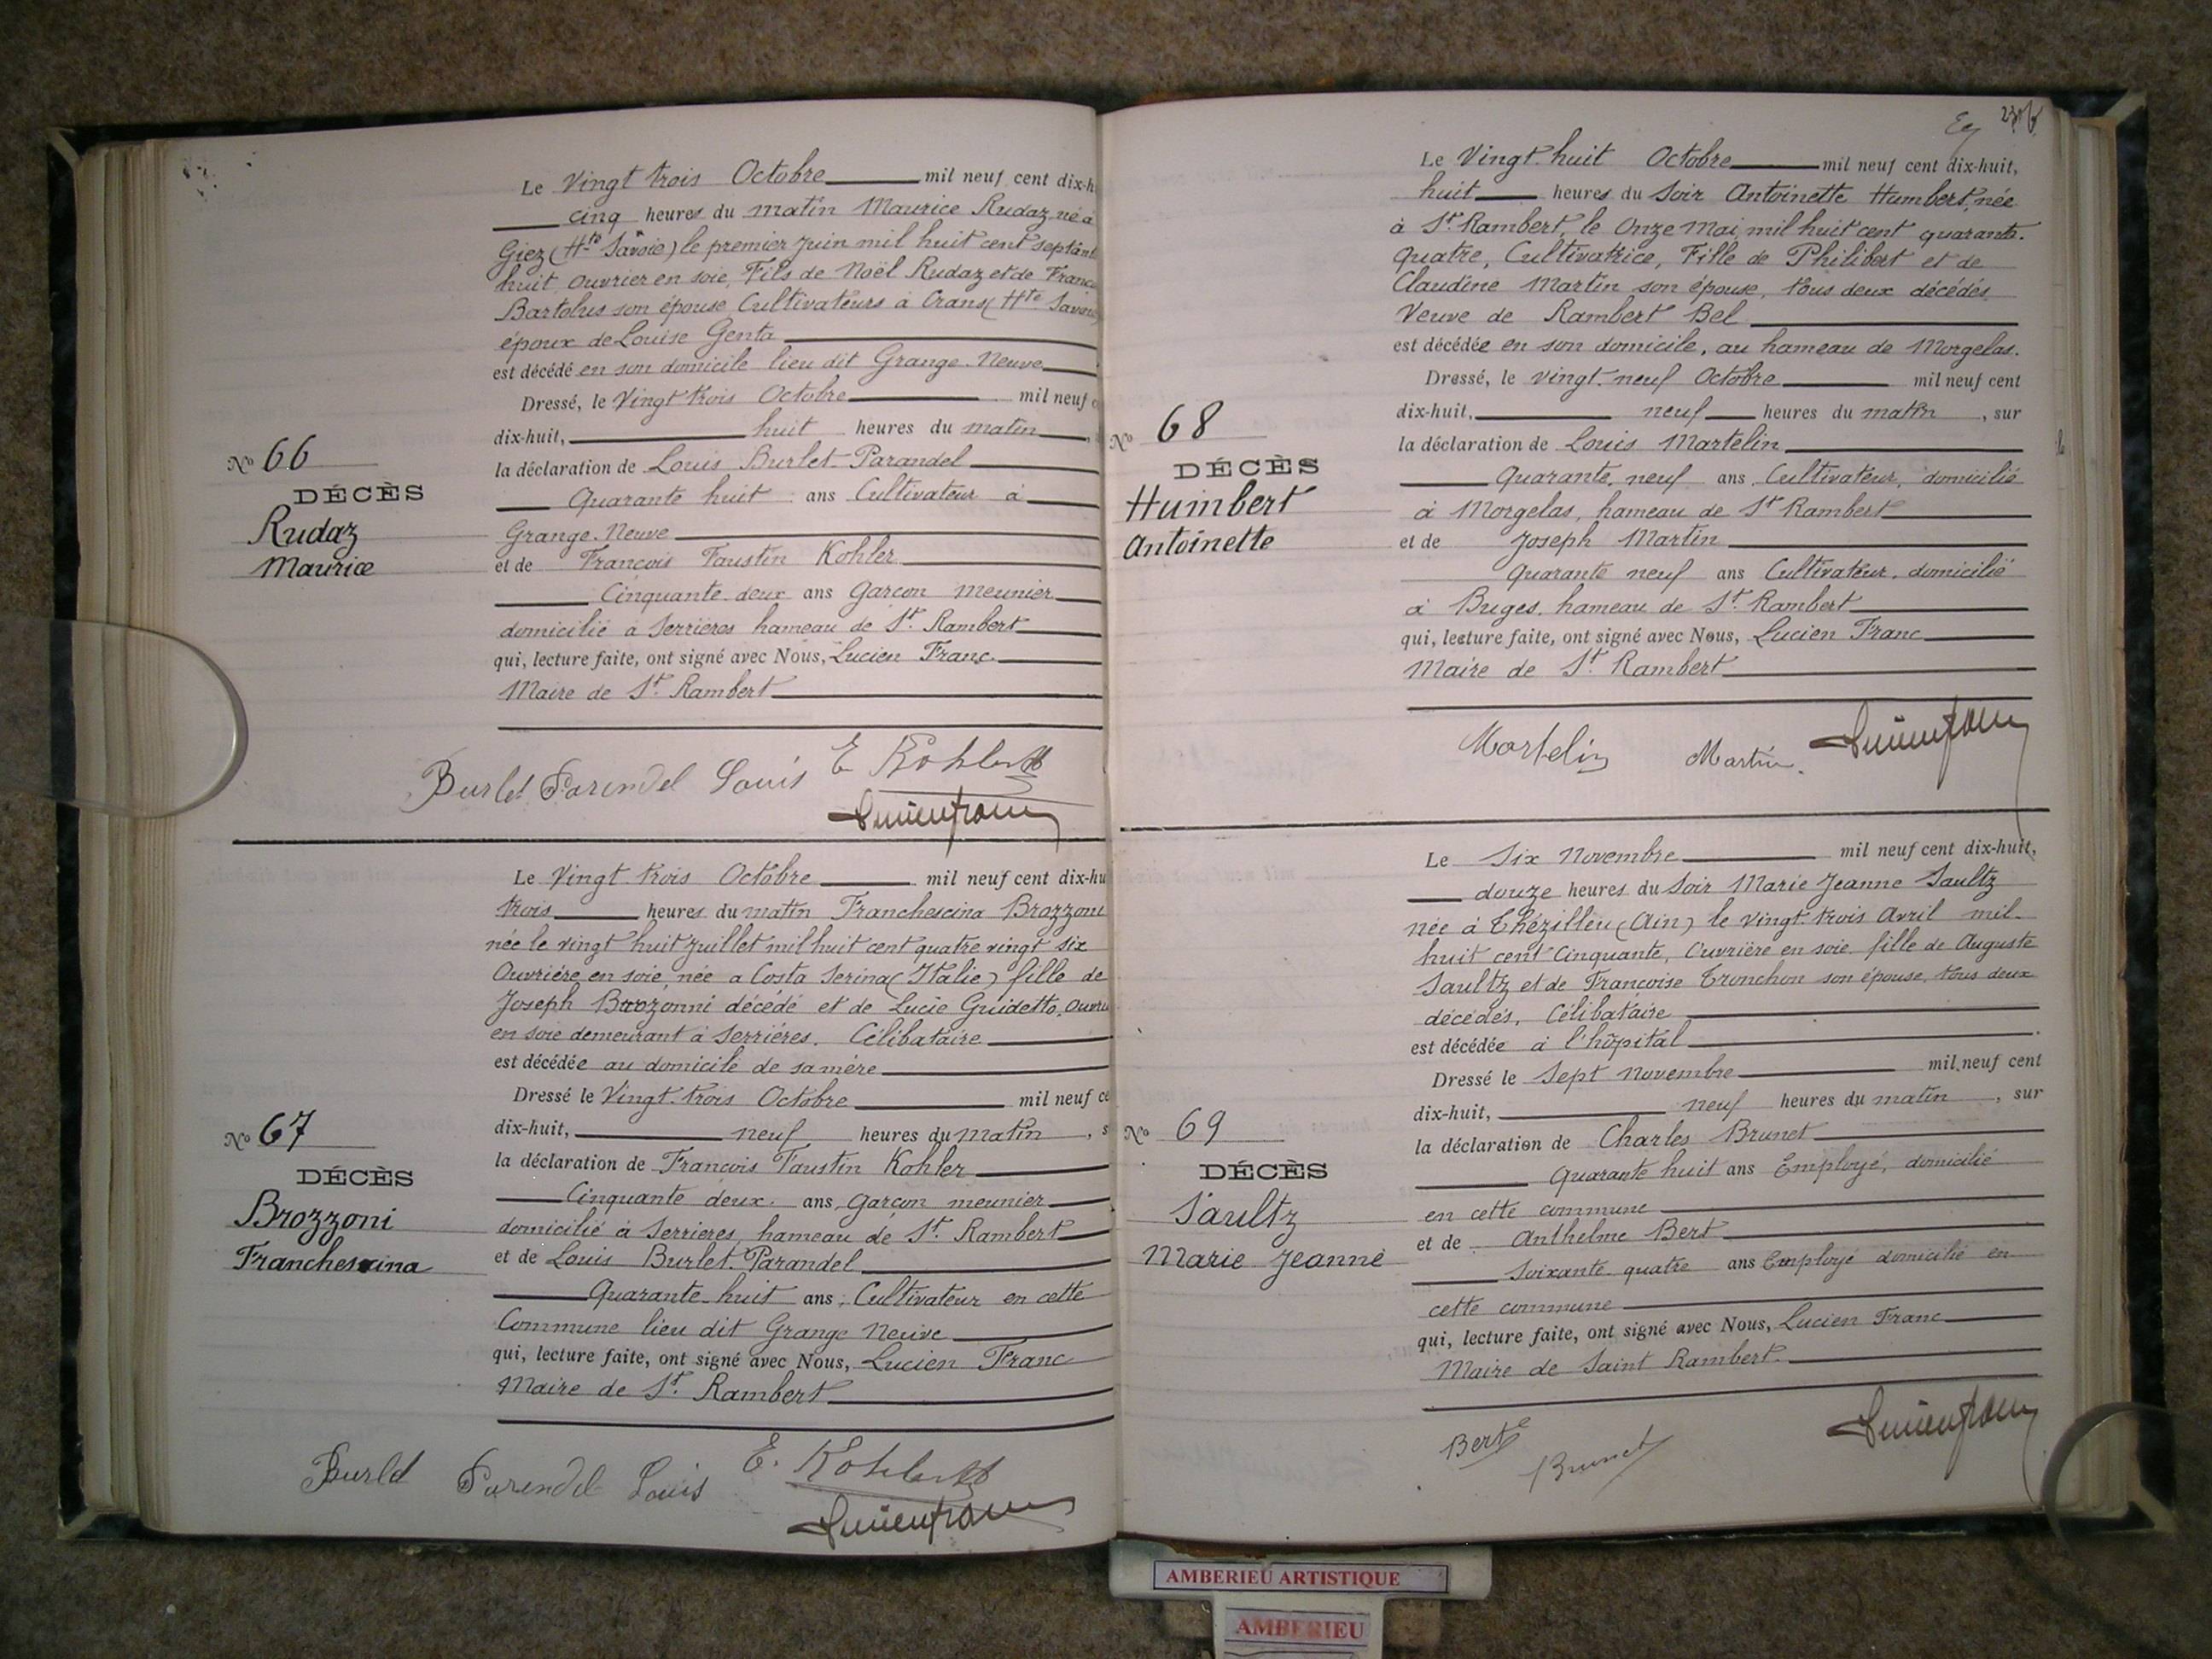 Le Vingt trois Octobre mil neuf cent dix-h
cinq heures du matin Maurice Rudaz, né à
Giez (Hte Savoie) le premier Juin mil huit cent septant
huit, ouvrier en soie, Fils de Noël Rudaz et de Franc
Bartolus son épouse Cultivateurs à Crans (Hte Savoie)
époux de Louise Genta
est décédé en son domicile lieu dit Grange-Neuve
Dressé, le Vingt trois Octobre mil neuf c
dix-huit, huit heures du matin
la déclaration de Louis Burlet-Parandel
Quarante huit ans Cultivateur à
Grange-Neuve
et de François Faustin Kohler
Cinquante-deux ans Garçon meunier
domicilié à Serrières hameau de St. Rambert
qui, lecture faite, ont signé avec Nous, Lucien Franc.
Maire de St. Rambert
No 66
DÉCÈS
Rudaz
Maurice
Burlet Parendel Louis E Kohler
Lucien franc
Le Vingt-trois Octobre mil neuf cent dix-hu
trois heures du matin Franchescina Brozzoni
née le vingt huit Juillet mil huit cent quatre vingt six
Ouvrière en soie, née a Costa Serina (Italie) fille de
Joseph Brozonni décédé et de Lucie Guidetto, Ouvri
en soie demeurant à Serrières. Célibataire
est décédée au domicile de sa mère
Dressé le Vingt-trois Octobre mil neuf ce
dix-huit, neuf heures du matin, s
la déclaration de François Faustin Kohler
Cinquante deux. ans, garçon meunier
domicilié à Serrieres, hameau de St. Rambert
et de Louis Burlet-Parandel
Quarante-huit ans, Cultivateur en cette
Commune lieu dit Grange Neuve
qui, lecture faite, ont signé avec Nous, Lucien Franc
Maire de St. Rambert
No 67
DÉCÈS
Brozzoni
Franchescina
Burlet Parendel Louis E. Kohler
Lucien franc
Le Vingt-huit Octobre mil neuf cent dix-huit,
huit heures du Soir Antoinette Humbert, née
à St. Rambert, le Onze Mai mil huit cent quarante-
quatre, Cultivatrice, Fille de Philibert et de
Claudine Martin son épouse, tous deux décédés
Veuve de Rambert Bel
est décédée en son domicile, au hameau de Morgelas.
Dressé, le vingt-neuf Octobre mil neuf cent
dix-huit, neuf heures du matin, sur
la déclaration de Louis Martelin
Quarante-neuf ans, Cultivateur, domicilié
à Morgelas, hameau de St Rambert
et de Joseph Martin
Quarante neuf ans Cultivateur, domicilié
à Buges, hameau de St. Rambert
qui, lecture faite, ont signé avec Nous, Lucien Franc
Maire de St. Rambert
No 68
DÉCÈS
Humbert
Antoinette
Martelin Martin. Lucien franc
Le Six Novembre mil neuf cent dix-huit,
douze heures du Soir Marie Jeanne Saultz
née à Thézillieu (Ain) le vingt-trois Avril mil-
huit cent Cinquante, Ouvrière en soie fille de Auguste
Saultz et de Françoise Tronchon son épouse, tous deux
décédés, Célibataire
est décédée à l'hôpital
Dressé le Sept Novembre mil neuf cent
dix-huit, neuf heures du matin, sur
la déclaration de Charles Brunet
Quarante huit ans Employé, domicilié
en cette commune
et de Anthelme Bert
Soixante-quatre ans Employé domicilié en
cette commune
qui, lecture faite, ont signé avec Nous, Lucien Franc
Maire de Saint Rambert.
No 69
DÉCÈS
Saultz
Marie Jeanne
Bert Brunet Lucien franc
AMBERIEU ARTISTIQUE
AMBERIEU